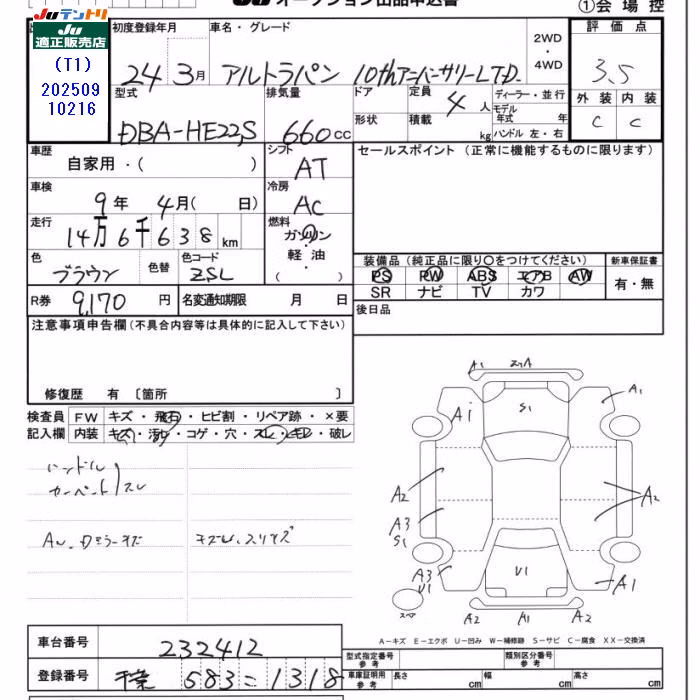 Juテントリ
Ju オークション出品申込書
①会場控
Ju 適正販売店
(T1)
202509
10216
初度登録年月
24 3月
車名・グレード
アルトラパン 10thアニバーサリーLTD.
2WD
・4WD
評価点
3.5
外装 内装
C C
型式
DBA-HE22S
排気量
660cc
ドア
形状
定員
4人
積載
kg
ディーラー・並行
モデル年式 年
ハンドル 左・右
車歴
自家用・( )
シフト
AT
車検
9年 4月( 日)
冷房
AC
走行
14万6千638km
燃料
ガソリン
軽油
( )
色
ブラウン
色替
色コード
ZSL
R券
9,170円
名変通知期限 月 日
セールスポイント(正常に機能するものに限ります)
装備品(純正品に限り○をつけてください)
PS PW ABS エアB AW
SR ナビ TV カワ
新車保証書
有・無
後日品
注意事項申告欄(不具合内容等は具体的に記入して下さい)
修復歴 有 〔箇所 〕
検査員記入欄
FW キズ・飛石・ヒビ割・リペア跡・×要
内装 キズ・汚れ・コゲ・穴・スレ・キレ・破レ
ハンドル
カーペット スレ
A1
A1
A1
S1
A2
A2
A3
S1
A3
U1
U1
A1
スペア
A2
A1
A2
A-キズ E-エクボ U-凹み W-補修跡 S-サビ C-腐食 XX-交換済
車台番号
232412
登録番号
千葉 583 = 1318
型式指定番号 参考
類別区分番号 参考
車庫証明用 参考
長さ cm 幅 cm 高さ cm